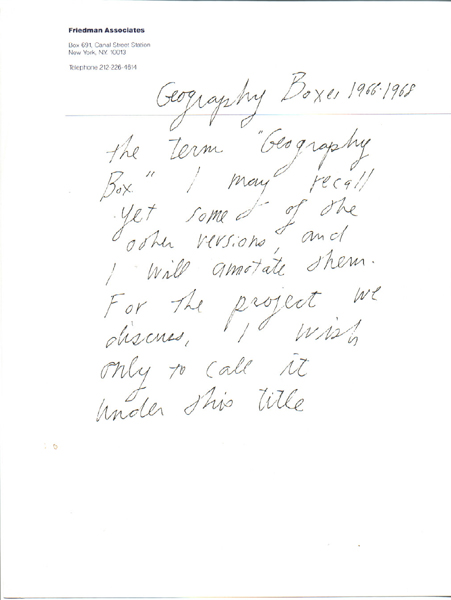 Friedman Associates
Box 691, Canal Street Station
New York, NY 10013
Telephone 212-226-4614
Geography Boxes 1966-1968
the term "Geography
Box" I may recall
yet some of the
other versions, and
I will annotate them.
For the project we
discuss, I wish
only to call it
under this title